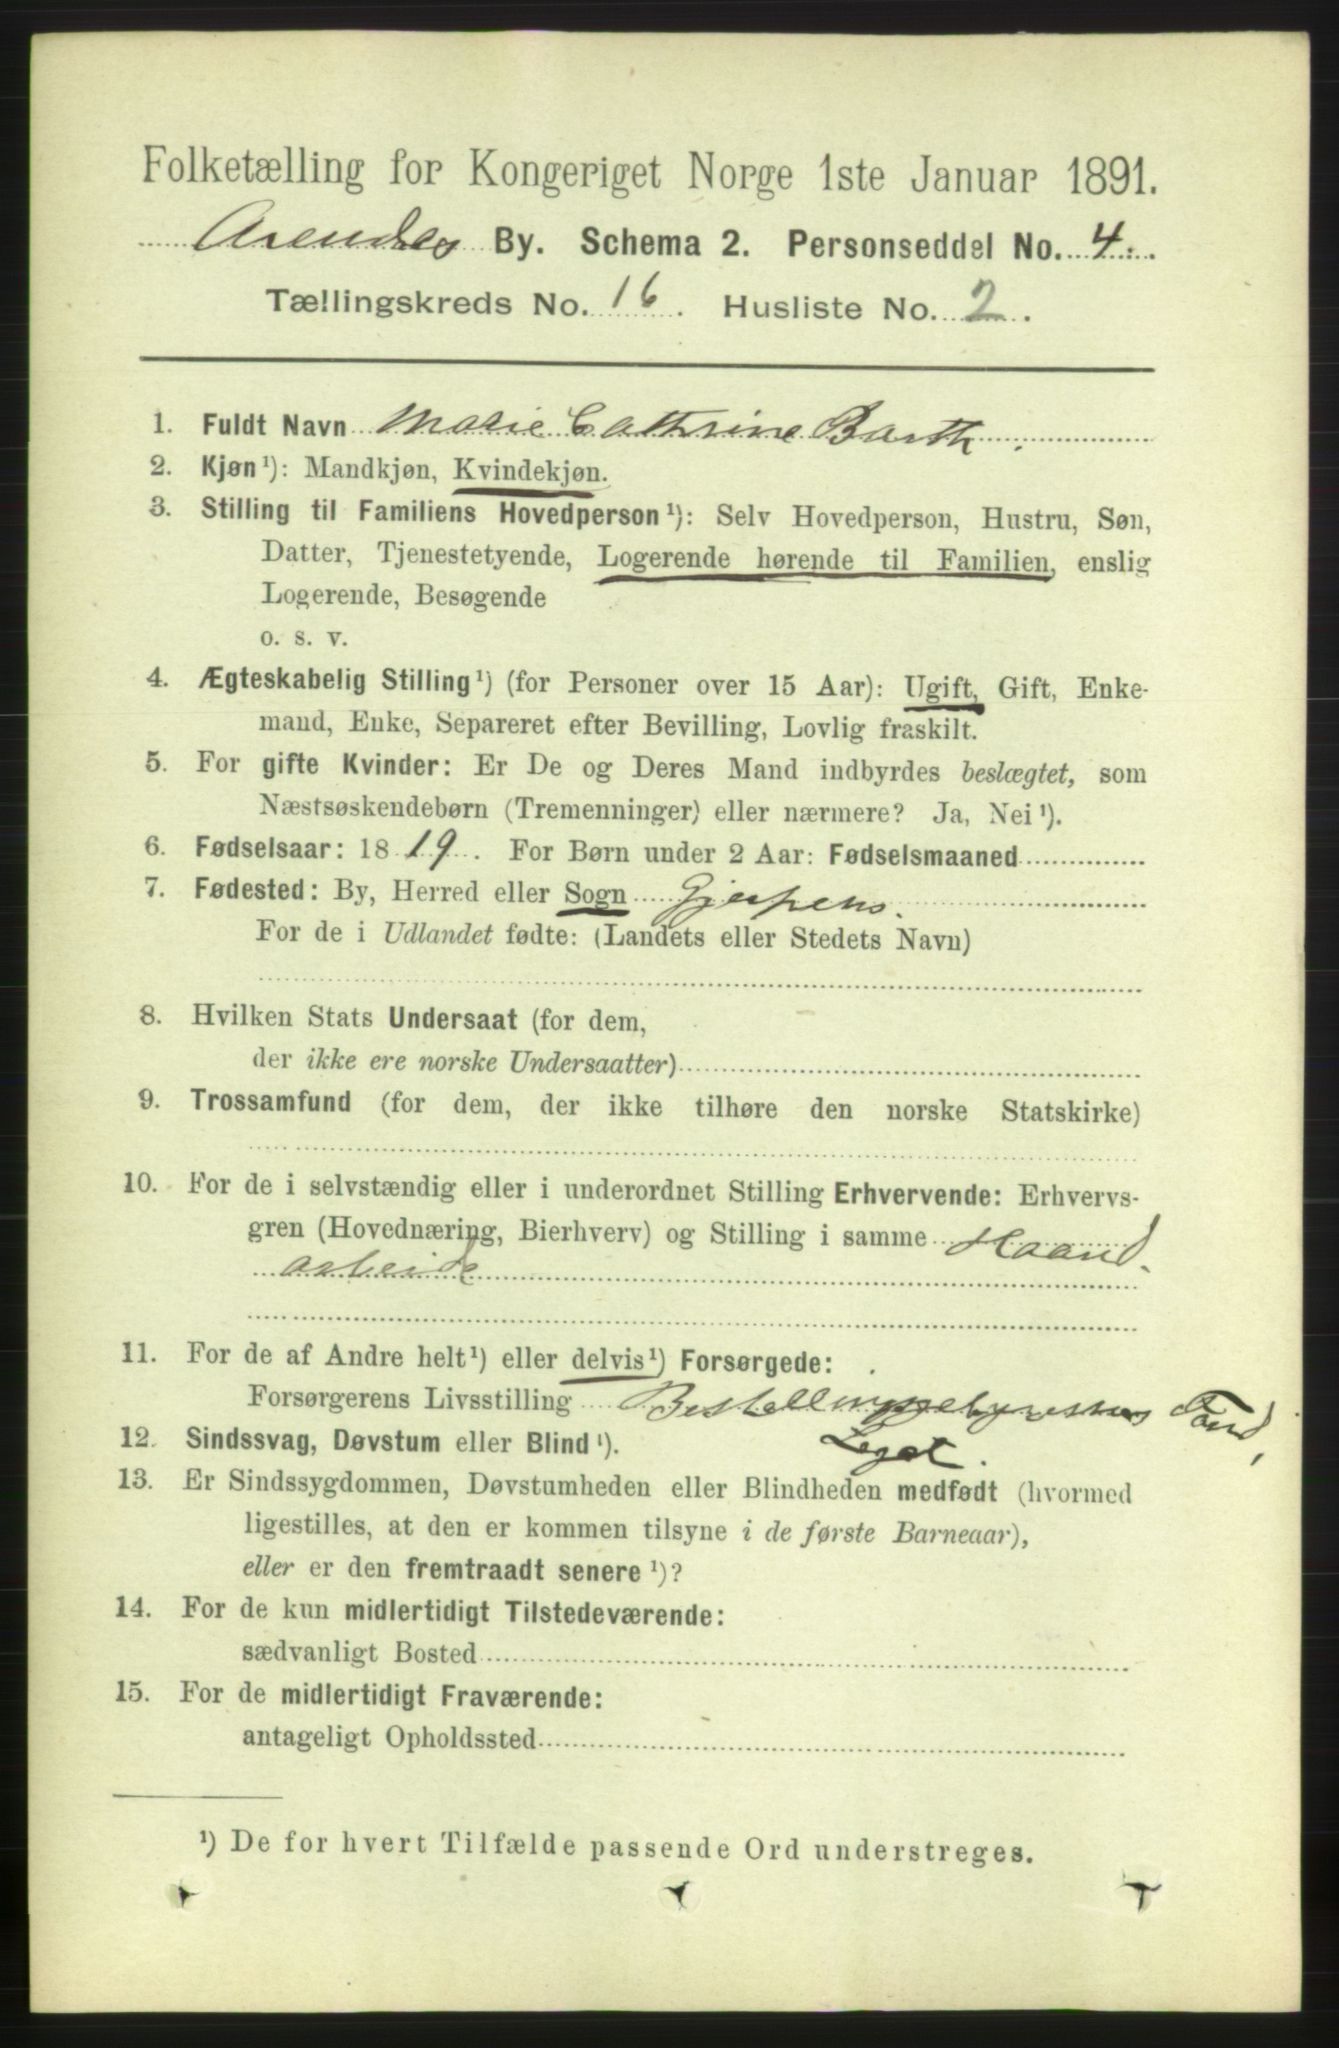 Folketælling for Kongeriget Norge 1ste Januar 1891.
Arendals By. Schema 2. Personseddel No. 4.
Tællingskreds No. 16. Husliste No. 2.
1. Fuldt Navn Marie Cathrine Barth.
2. Kjøn¹): Mandkjøn, Kvindekjøn.
3. Stilling til Familiens Hovedperson¹): Selv Hovedperson, Hustru, Søn,
Datter, Tjenestetyende, Logerende hørende til Familien, enslig
Logerende, Besøgende
o. s. v.
4. Ægteskabelig Stilling¹) (for Personer over 15 Aar): Ugift, Gift, Enke-
mand, Enke, Separeret efter Bevilling, Lovlig fraskilt.
5. For gifte Kvinder: Er De og Deres Mand indbyrdes beslægtet, som
Næstsøskendebørn (Tremenninger) eller nærmere? Ja, Nei¹).
6. Fødselsaar: 1819. For Børn under 2 Aar: Fødselsmaaned
7. Fødested: By, Herred eller Sogn Gjerpens.
For de i Udlandet fødte: (Landets eller Stedets Navn)
8. Hvilken Stats Undersaat (for dem,
der ikke ere norske Undersaatter)
9. Trossamfund (for dem, der ikke tilhøre den norske Statskirke)
10. For de i selvstændig eller i underordnet Stilling Erhvervende: Erhvervs-
gren (Hovednæring, Bierhverv) og Stilling i samme Haand.
arbeide
11. For de af Andre helt¹) eller delvis¹) Forsørgede:
Forsørgerens Livsstilling Fond,
12. Sindssvag, Døvstum eller Blind¹). Legat.
13. Er Sindssygdommen, Døvstumheden eller Blindheden medfødt (hvormed
ligestilles, at den er kommen tilsyne i de første Barneaar),
eller er den fremtraadt senere¹)?
14. For de kun midlertidigt Tilstedeværende:
sædvanligt Bosted
15. For de midlertidigt Fraværende:
antageligt Opholdssted
¹) De for hvert Tilfælde passende Ord understreges.